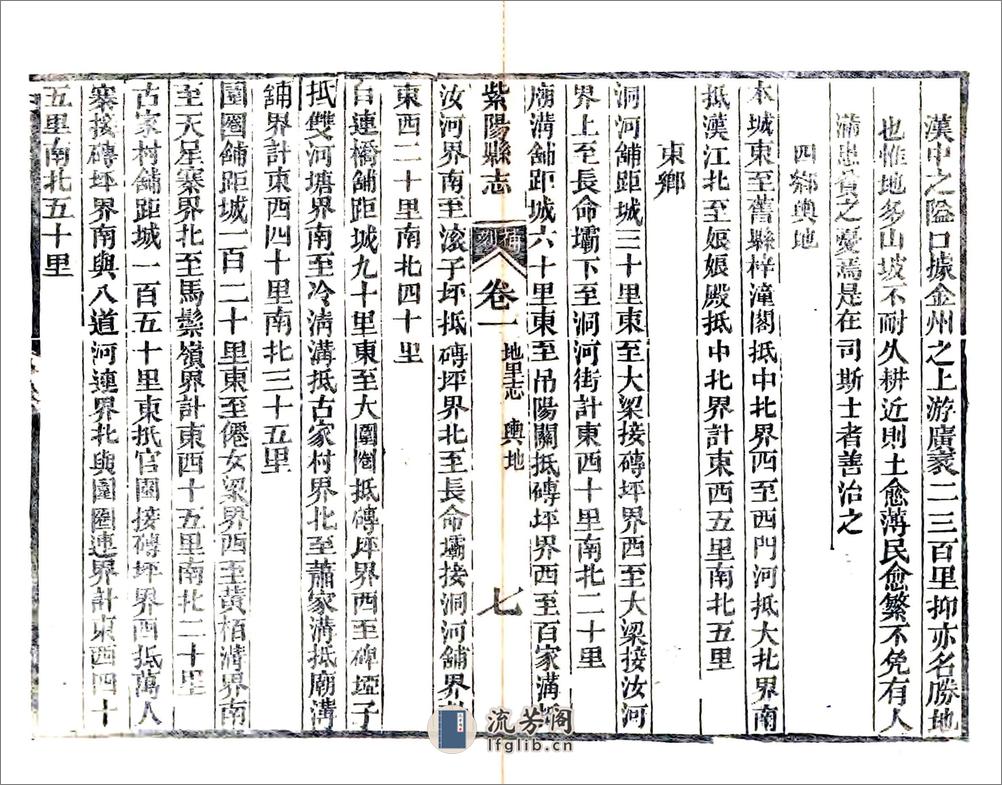 漢中之隘口據金州之上游廣袤二三百里抑亦名勝地
也惟地多山坡不耐久耕近則土愈薄民愈繁不免有人
滿患貧之憂焉是在司斯土者善治之
四鄉輿地
本城東至舊縣梓潼閣抵中北界西至西門河抵大北界南
抵漢江北至娘娘殿抵中北界計東西五里南北五里
東鄉
洞河舖距城三十里東至大梁接磚坪界西至大梁接汝河
界上至長命壩下至洞河街計東西十里南北二十里
廟溝舖距城六十里東至吊陽關抵磚坪界西至百家溝抵
紫陽縣志
補刻
卷一
地里志 輿地
七
汝河界南至滾子坪抵磚坪界北至長命壩接洞河舖界計
東西二十里南北四十里
白連橋舖距城九十里東至大圍圈抵磚坪界西至碑埡子
抵雙河塘界南至冷淸溝抵古家村界北至蕭家溝抵廟溝
舖界計東西四十里南北三十五里
圍圈舖距城一百二十里東至僊女梁界西至黃栢溝界南
至天星寨界北至馬鬃嶺界計東西十五里南北二十里
古家村舖距城一百五十里東抵官園接磚坪界西抵萬人
寨接磚坪界南與八道河連界北與圍圈連界計東西四十
五里南北五十里
流芳阁
lfglib.cn